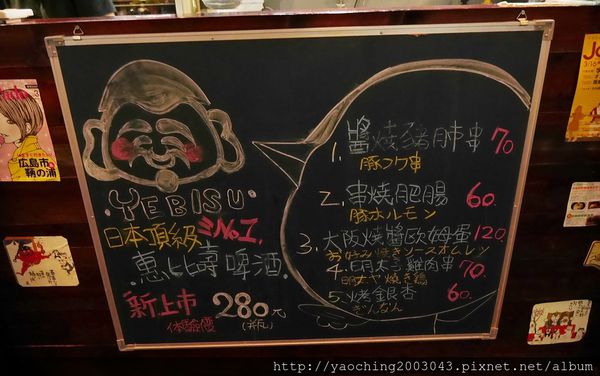 ·YEBISU·
日本頂級 NO.1.
惠比壽啤酒
新上市 280元
(瓶)
1. 醬燒豬肺串 70
豚フワ串
2. 串燒肥腸 60.
豚ホルモン
3. 大阪燒醬歐姆蛋 120.
お好み焼きソースオムレツ
4. 明太子雞肉串 70.
明太や焼き鶏
5. 烤銀杏 60.
ぎんなん
広島市
鞆の浦
http://yaoching2003043.pixnet.net/album